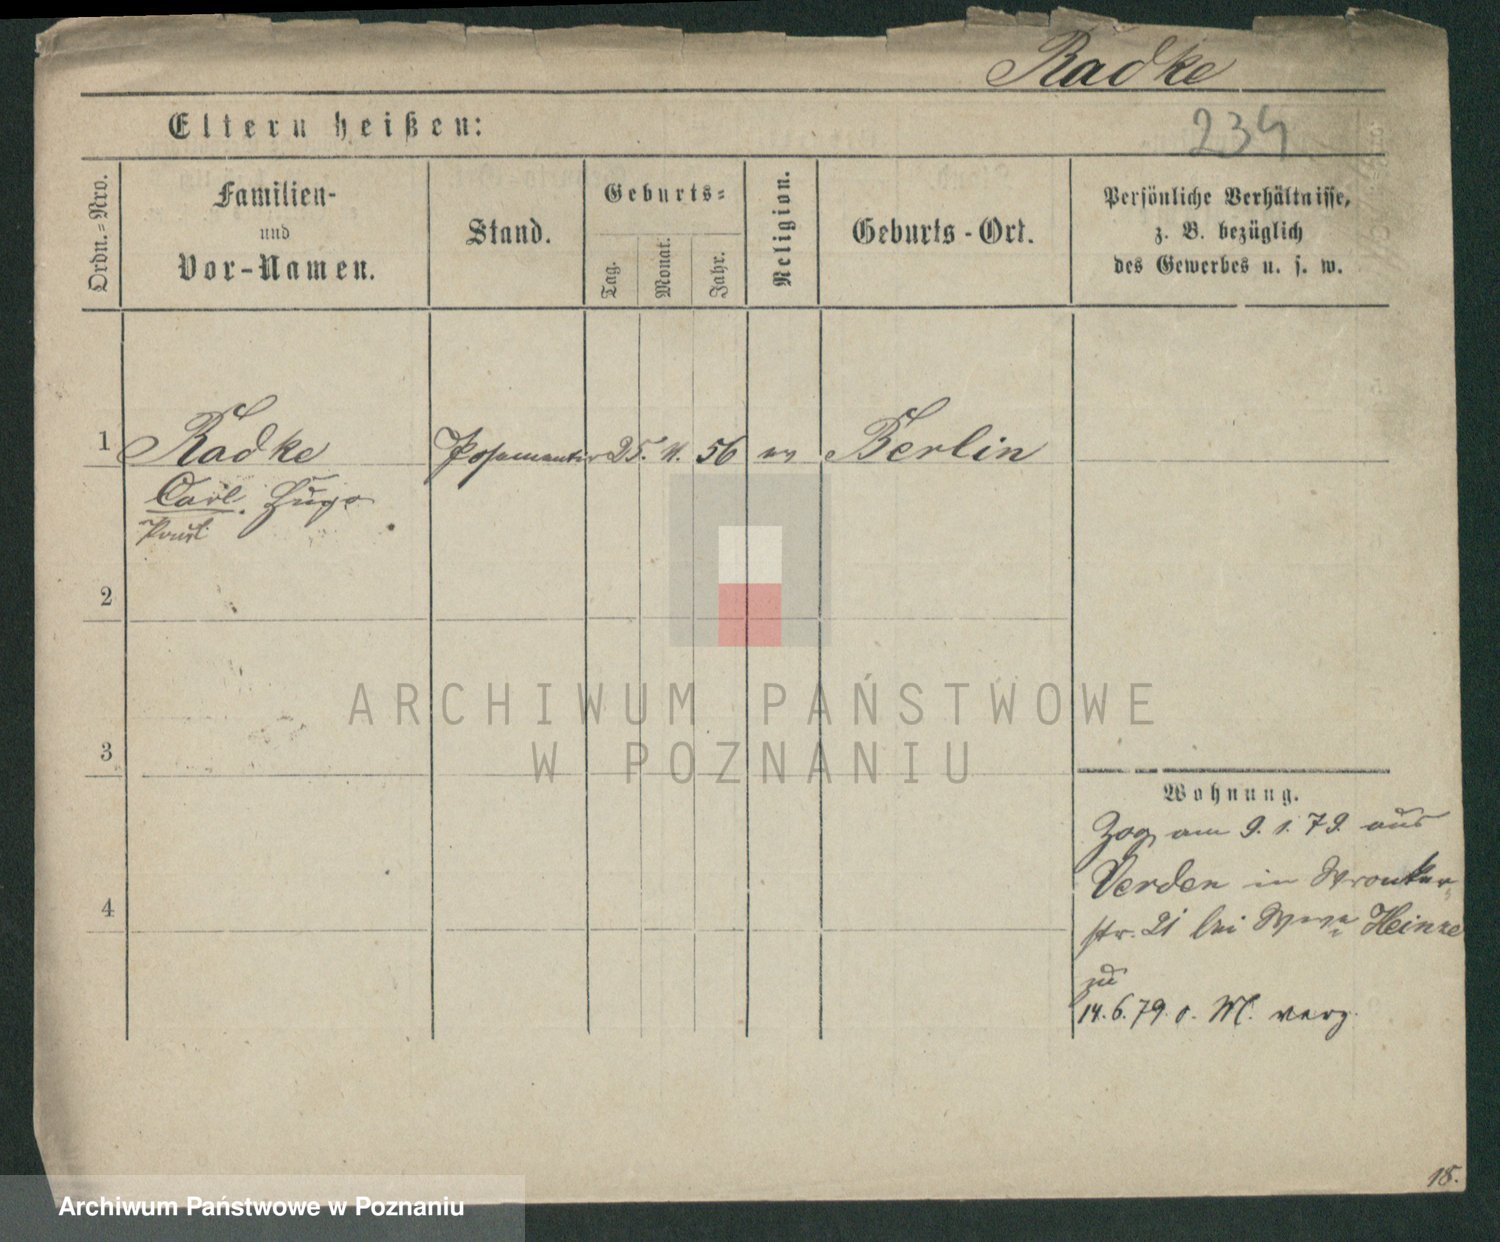 Radke
234
Eltern heißen:
Ordn.=Nro.
Familien-
und
Vor-Namen.
Stand.
Geburts=
Tag.
Monat.
Jahr.
Religion.
Geburts-Ort.
Persönliche Verhältnisse,
z. B. bezüglich
des Gewerbes u. s. w.
1 Radke Posamentir 25. 11. 56 ev Berlin
Carl. Hugo
Paul
2
3
4
Wohnung.
Zog am 9. 1. 79. aus
Verden in Wronker
str. 21 bei Wwe Heinze
zu
14. 6. 79. o. M. verz.
ARCHIWUM PAŃSTWOWE
W POZNANIU
18.
Archiwum Państwowe w Poznaniu